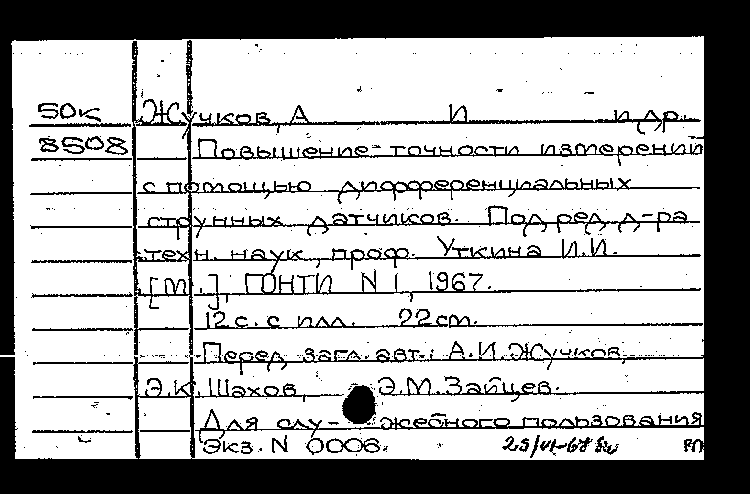 50к Жучков, А И и др.
8508 Повышение точности измерений
с помощью дифференциальных
струнных датчиков. Под ред. д-ра
техн. наук, проф. Уткина И.И.
[М.], ГОНТИ N 1, 1967.
12 с. с илл. 22 cm.
Перед загл. авт.: А.И. Жучков,
Э.К. Шахов, Э.М. Зайцев.
Для слу- жебного пользования
Экз. N 0006. 25/VI-68